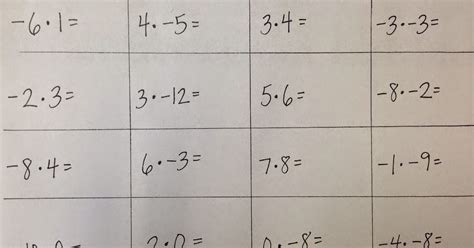 -6·1= 4·-5= 3·4= -3·-3=
-2·3= 3·-12= 5·6= -8·-2=
-8·4= 6·-3= 7·8= -1·-9=
2·0= 0·-8= -4·-8=